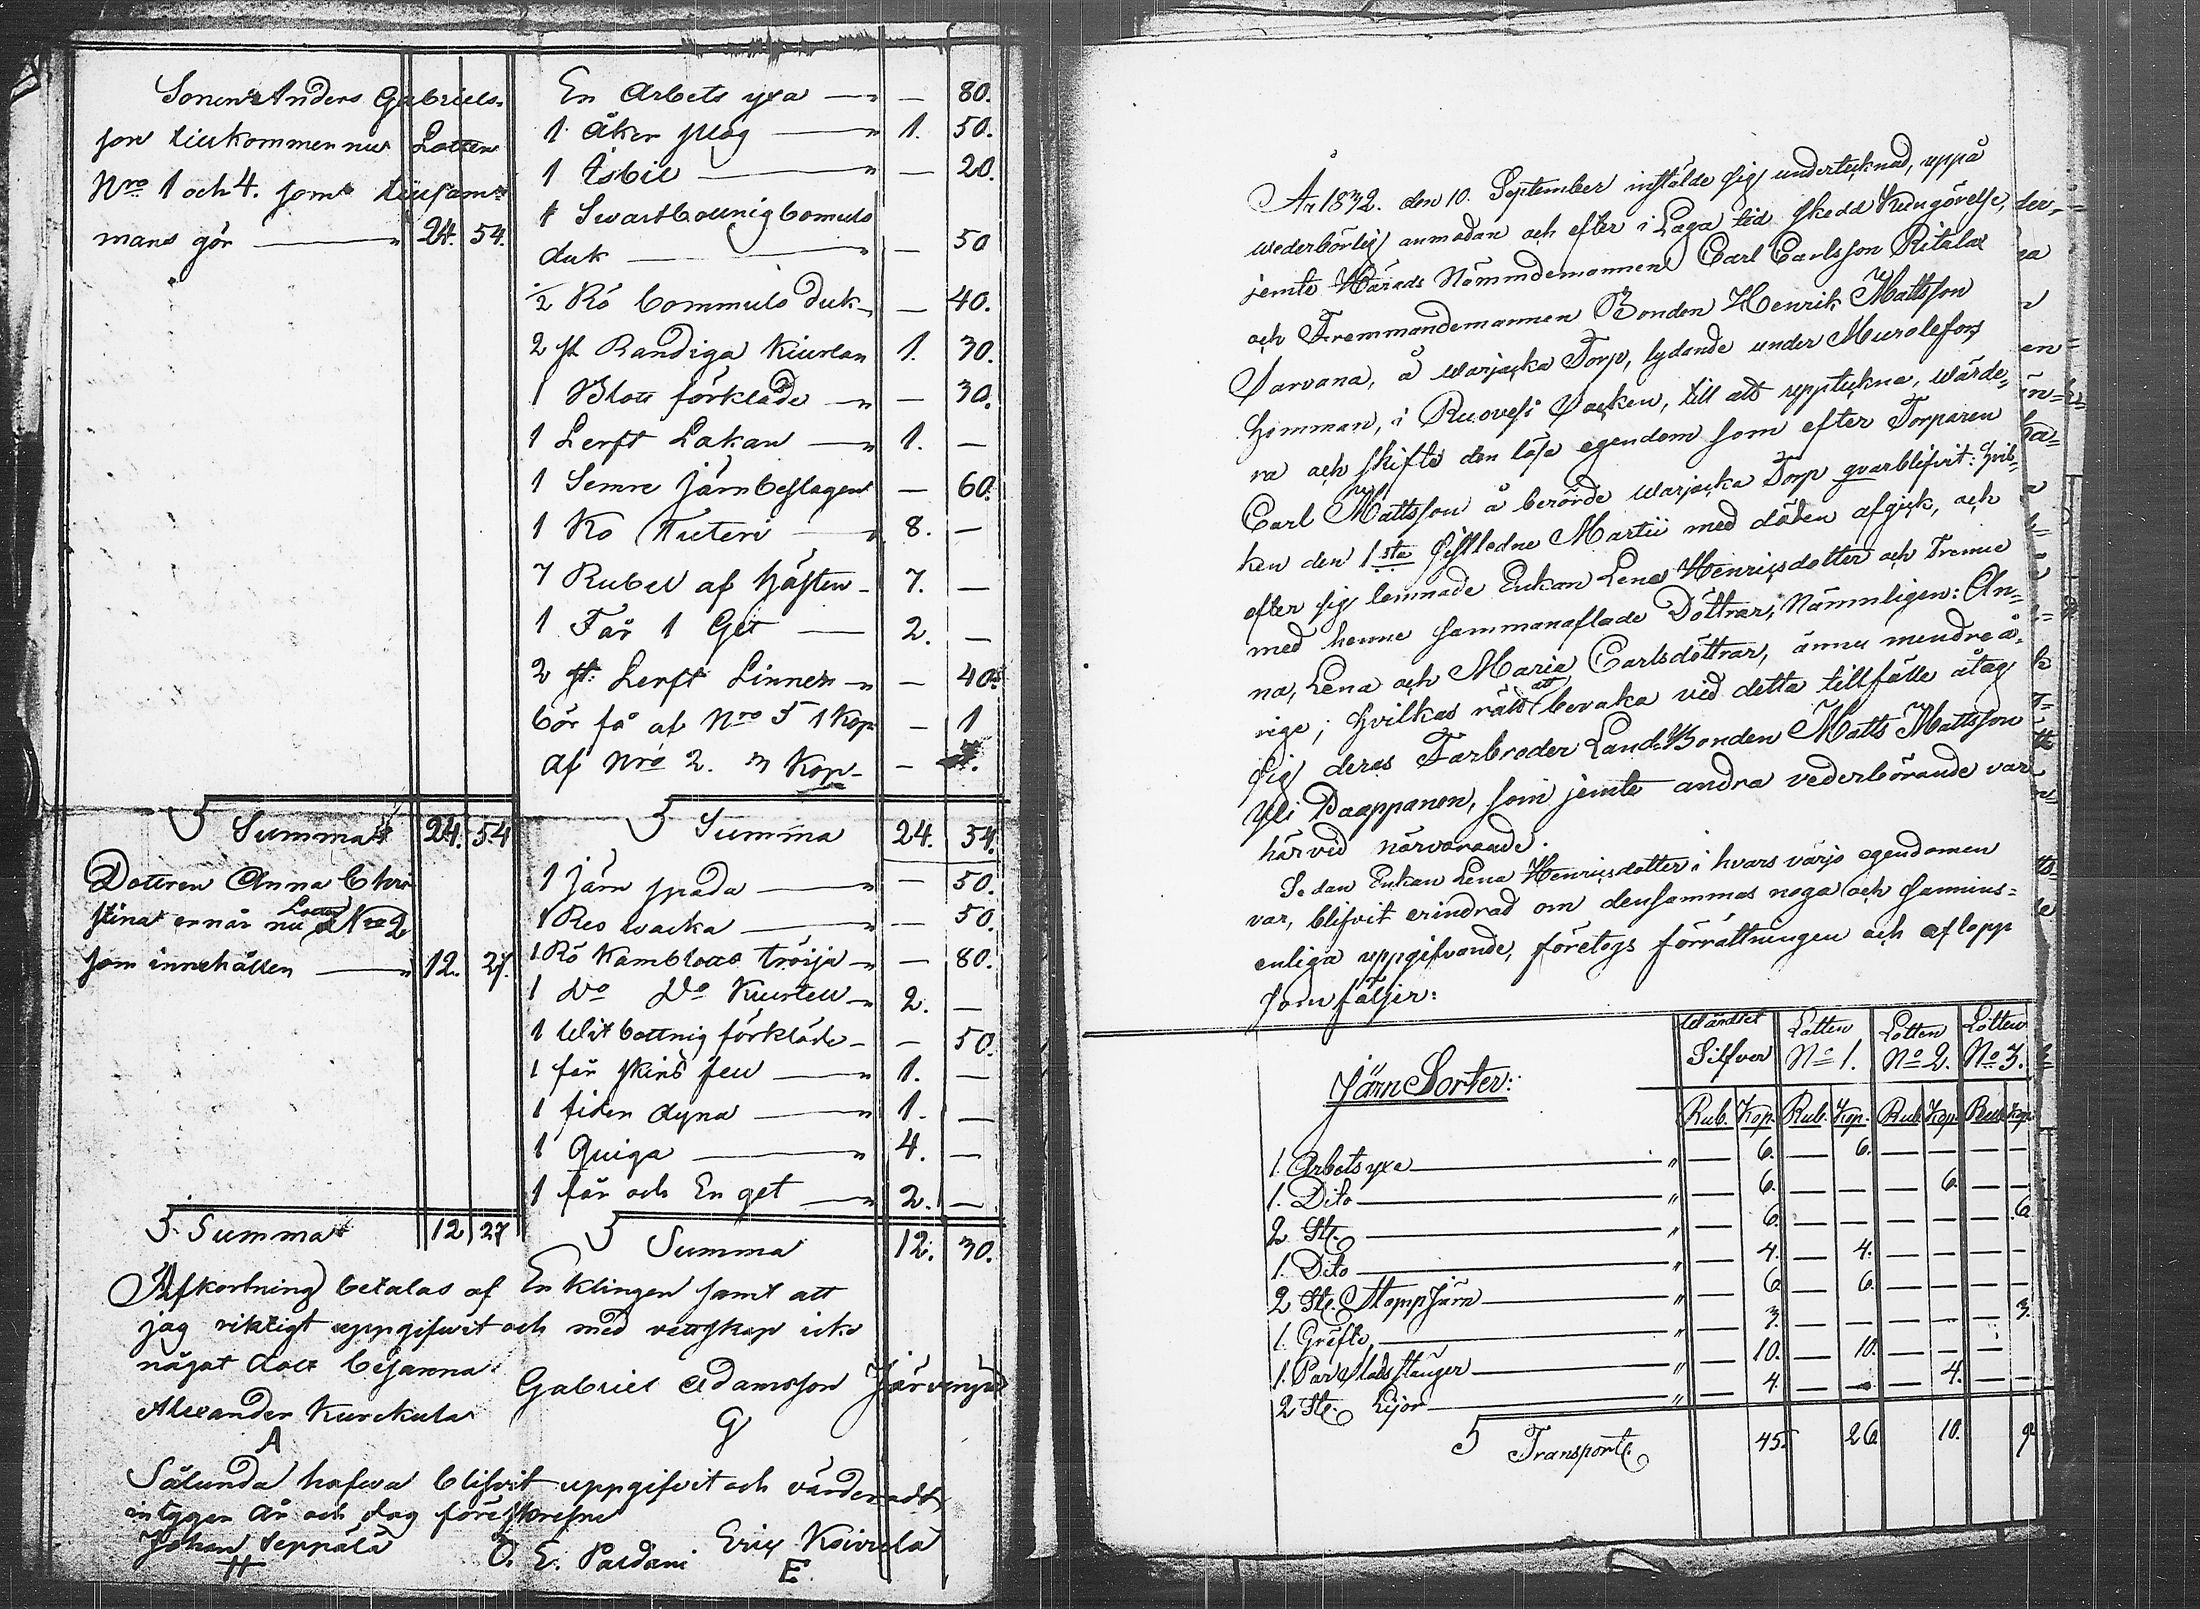 Sonen Anders Gabriels-
son tillkommer nu Lotten
Nro 1 och 4. som tillsam-
mans gör 24. 54.
En Arbets yxa — 80.
1 Åker plog 1. 50.
1 Isbil — 20.
1 Swartbottnig bomuls
duk — 50
½ Rö bommuls duk — 40.
2 st Randiga kiurlar 1. 30.
1 Blott förkläde — 30.
1 Lerft Lakan 1. —
1 järnbeslagen — 60.
1 Ko 8. —
7 Rubel af hästen 7. —
1 Får 1 Get 2. —
2 st. Lerft Linner — 40.
bör få af Nro 3 1 Kop — 1
af Nro 2. 3 Kop —
Summa 24. 54
Summa 24. 54.
Dottren Anna Chri
stina ernår nu Lotten Nro 2
som innehåller 12. 27.
1 järn spada — 50.
1 Reo wacka — 50.
1 Rö Kamblotts tröija — 80.
1 Do Do Kiurtell 2. —
1 Witbottnig förkläde — 50.
1 får skins fell 1. —
1 fider dyna 1. —
1 Quiga 4. —
1 får och En get 2. —
Summa 12 27
Summa 12. 30.
Afkortning betalas af Enklingen samt att
jag riktigt uppgifwit och med wettskap icke
något dolt bejanna
Alexander Kurckula
A
Gabriel Adamsson Järvenpää
G
Sålunda hafwa blifwit uppgifwit och värderadt,
intyger År och dag föreskrefne
Johan Seppälä
H
O. E. Paldani
Eric Koivula
E.
År 1832. den 10. September instälde sig undertecknad, uppå
wederbörlig anmodan och efter i Laga tid skedd Kungörelse,
jemte Härads Nämndemannen Carl Carlsson Ritala
och Fremmandemannen Bonden Henrik Mattsson
Sarvana, å Warjacka Torp, lydande under Murolefors
Hemman, i Ruovesi Socken, till att uppteckna, wärde-
ra och skifta den lösa egendom som efter Torparen
Carl Mattsson å berörde Warjacka Torp qvarblifvit: hvil-
ken den 1sta sistledne Martii med döden afgick, och
efter sig lemnade Enkan Lena Henricsdotter och Trenne
med henne sammanaflade Döttrar, Nämnligen: An-
na, Lena och Maria Carlsdöttrar, ännu mendreå-
rige; hvilkas rätt att bevaka vid detta tillfälle åtog
sig deras Farbroder Land Bonden Matts Mattsson
Yli Paappanen, som jemte andra vederbörande var
härvid närvarande.
Sedan Enkan Lena Henricsdotter i hvars värjo egendomen
var, blifvit erindrad om densammas noga och sannins-
enliga uppgifvande, företogs förrättningen och aflopp
som följer:
Järn Sorter:
Wärdet Silfver Lotten No 1. Lotten No 2. Lotten No 3.
Rub. Kop. Rub. Kop. Rub. Kop. Rub. Kop.
1. Arbets yxa — 6. — 6. — — — —
1. Dito — 6. — — — 6. — —
2 St. — 6. — — — — — 6
1. Dito — 4. — 4. — — — —
2 St. Stoppjärn — 6 — 6. — — — —
1. Gräfta — 3. — — — — — 3.
1. Par Stadsstänger — 10. — 10. — — — —
2 St. Lijor — 4. — — — 4. — —
Transport 45. 26 10. 9